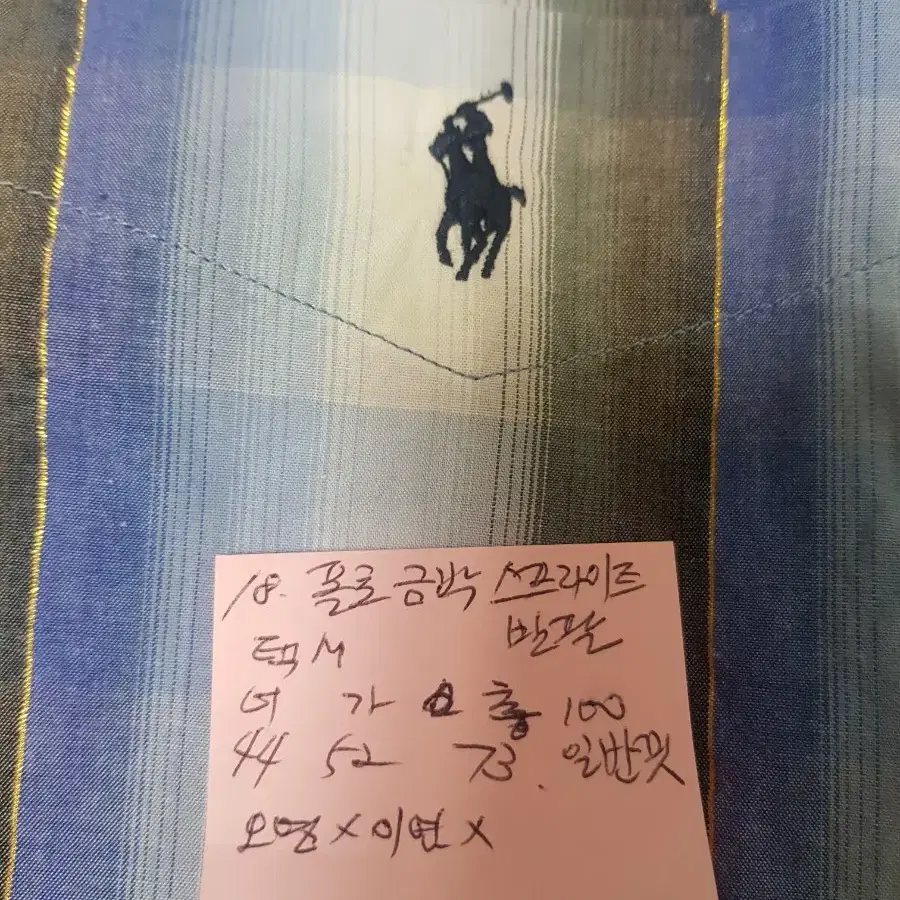 18. 폴로 금박 스프라이트
반팔
텍 M
어 가 총 100
44 52 73. 일반핏
오염 X 이염 X